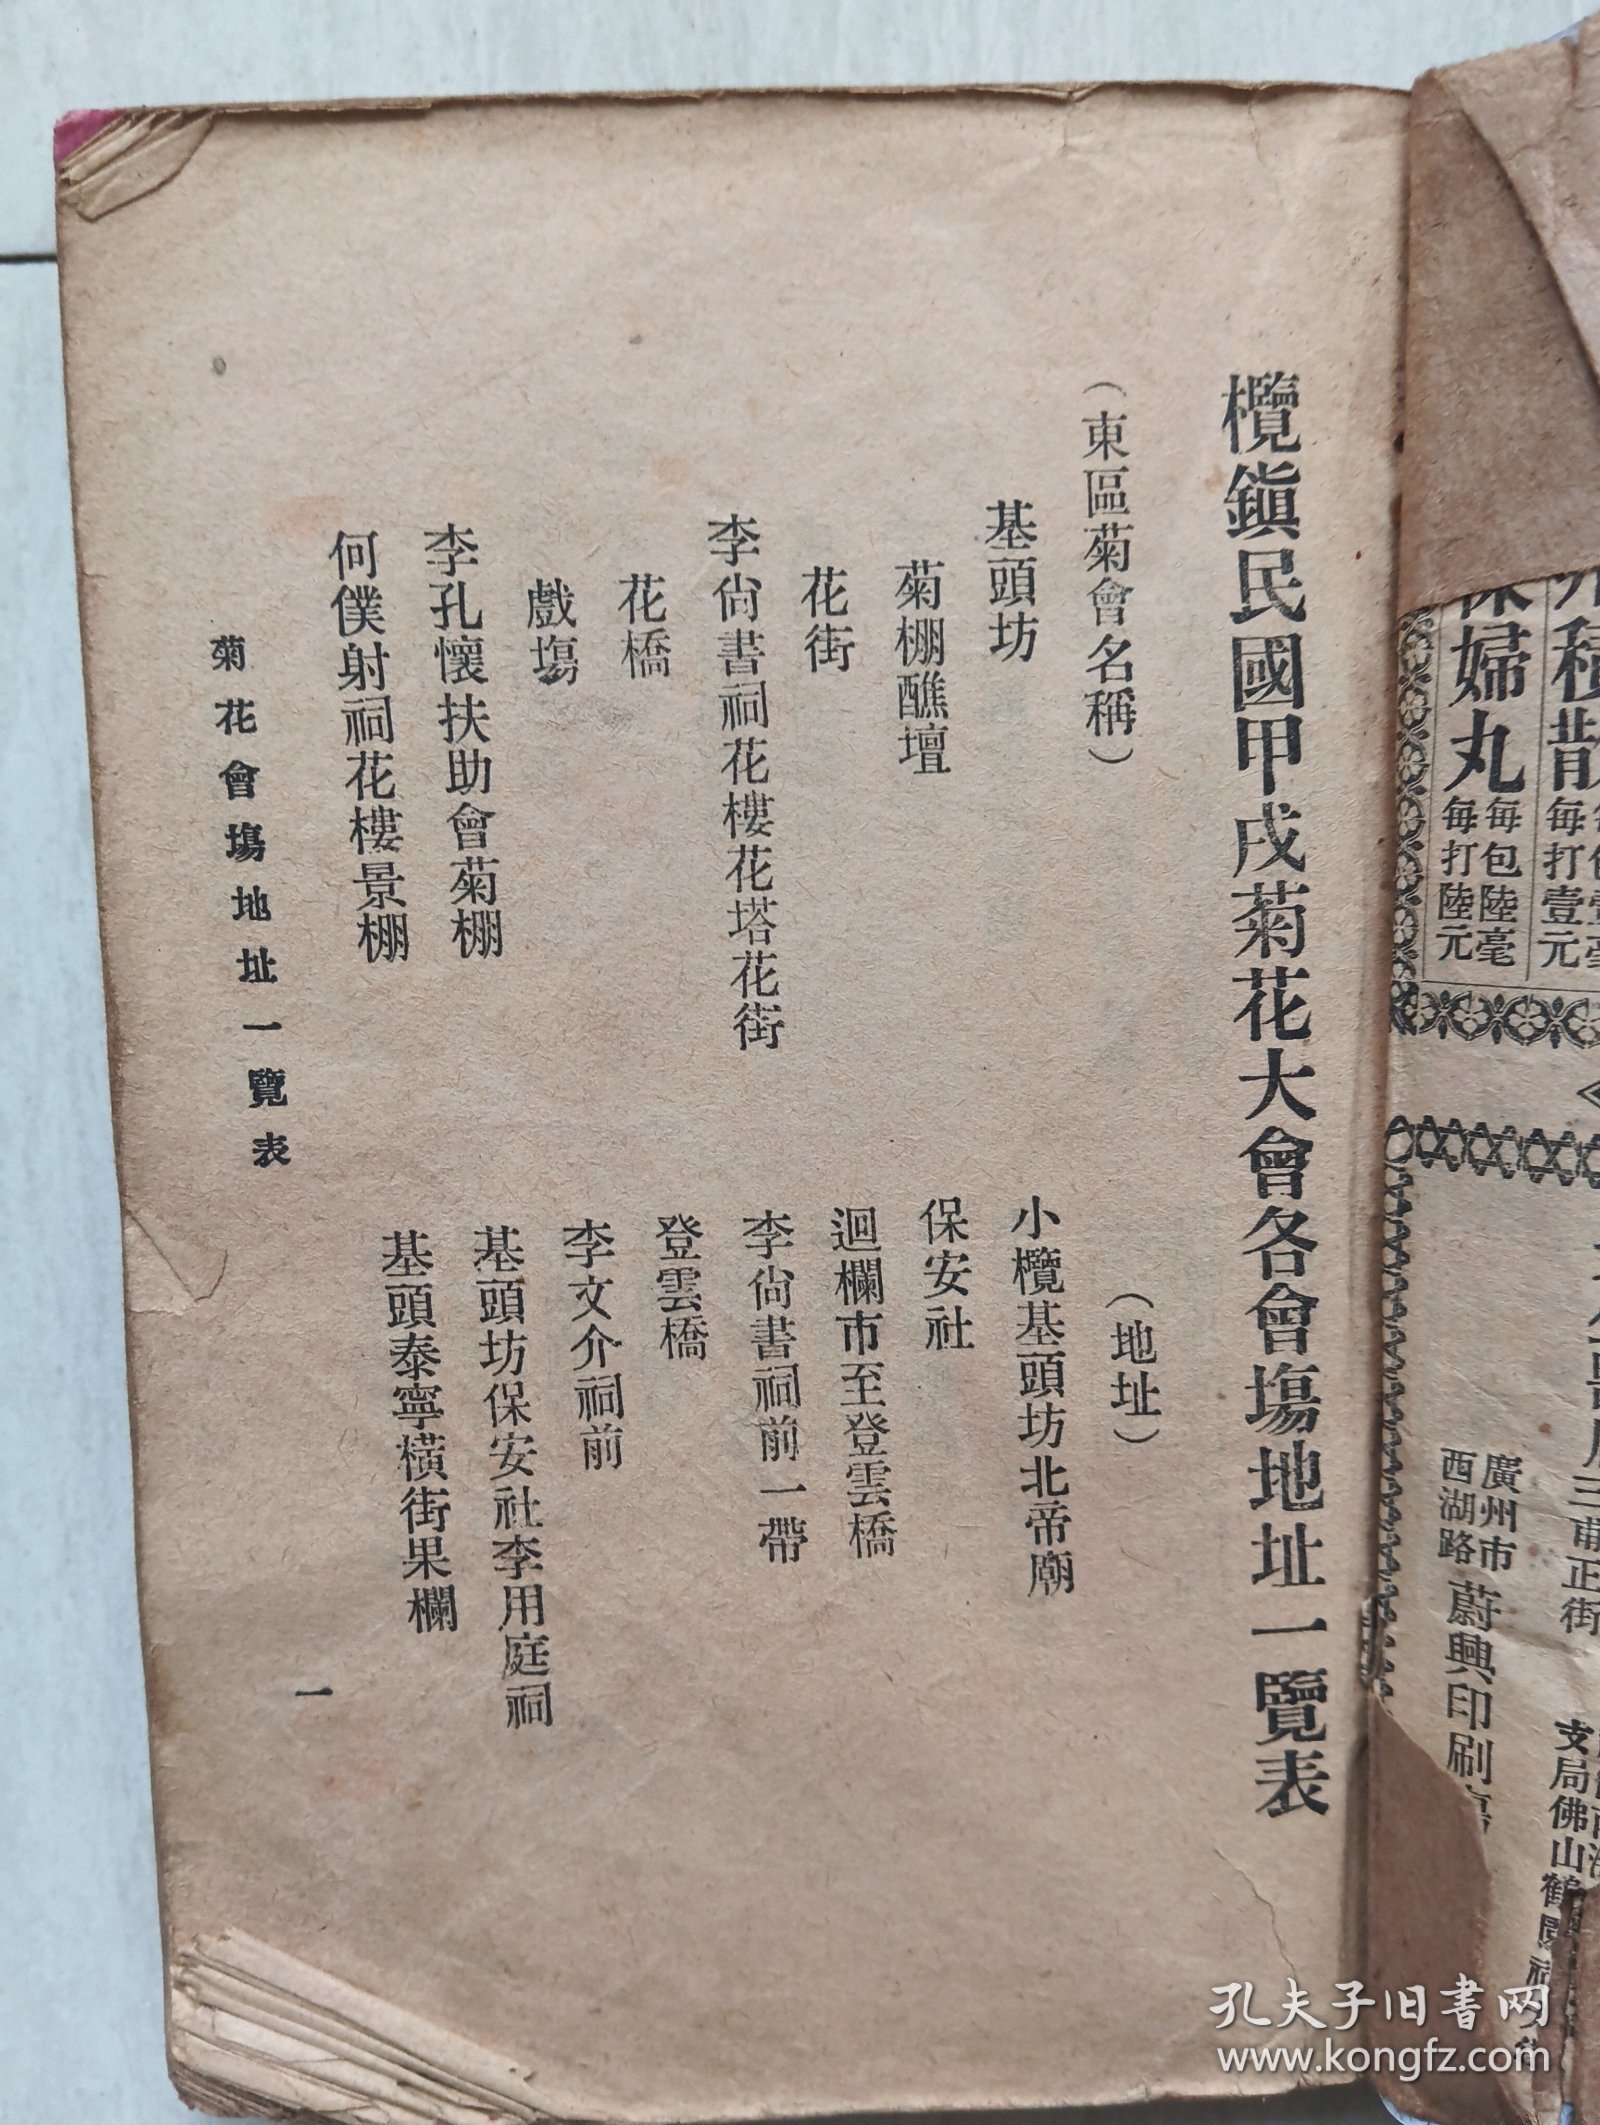 欖鎮民國甲戌菊花大會各會塲地址一覽表
（東區菊會名稱）
（地址）
基頭坊
小欖基頭坊北帝廟
菊棚醮壇
保安社
花街
迴欄市至登雲橋
李尙書祠花樓花塔花街
李尙書祠前一帶
花橋
登雲橋
戲塲
李文介祠前
李孔懷扶助會菊棚
基頭坊保安社李用庭祠
何僕射祠花樓景棚
基頭泰寧橫街果欄
菊花會塲地址一覽表
一
積散
每打壹元
婦丸
每包陸毫
每打陸元
三甫正街
廣州市
西湖路
蔚興印刷
支局佛山鶴園
孔夫子旧书网
www.kongfz.com